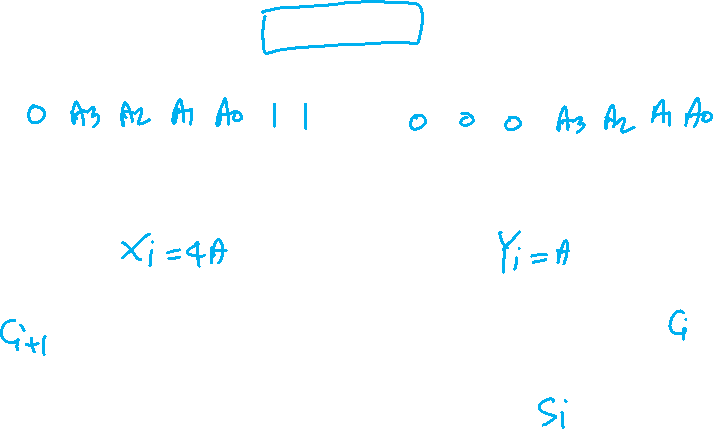 0 A3 A2 A1 A0 1 1 0 0 0 A3 A2 A1 A0
Xi = 4A Yi = A
Ci+1 Ci
Si